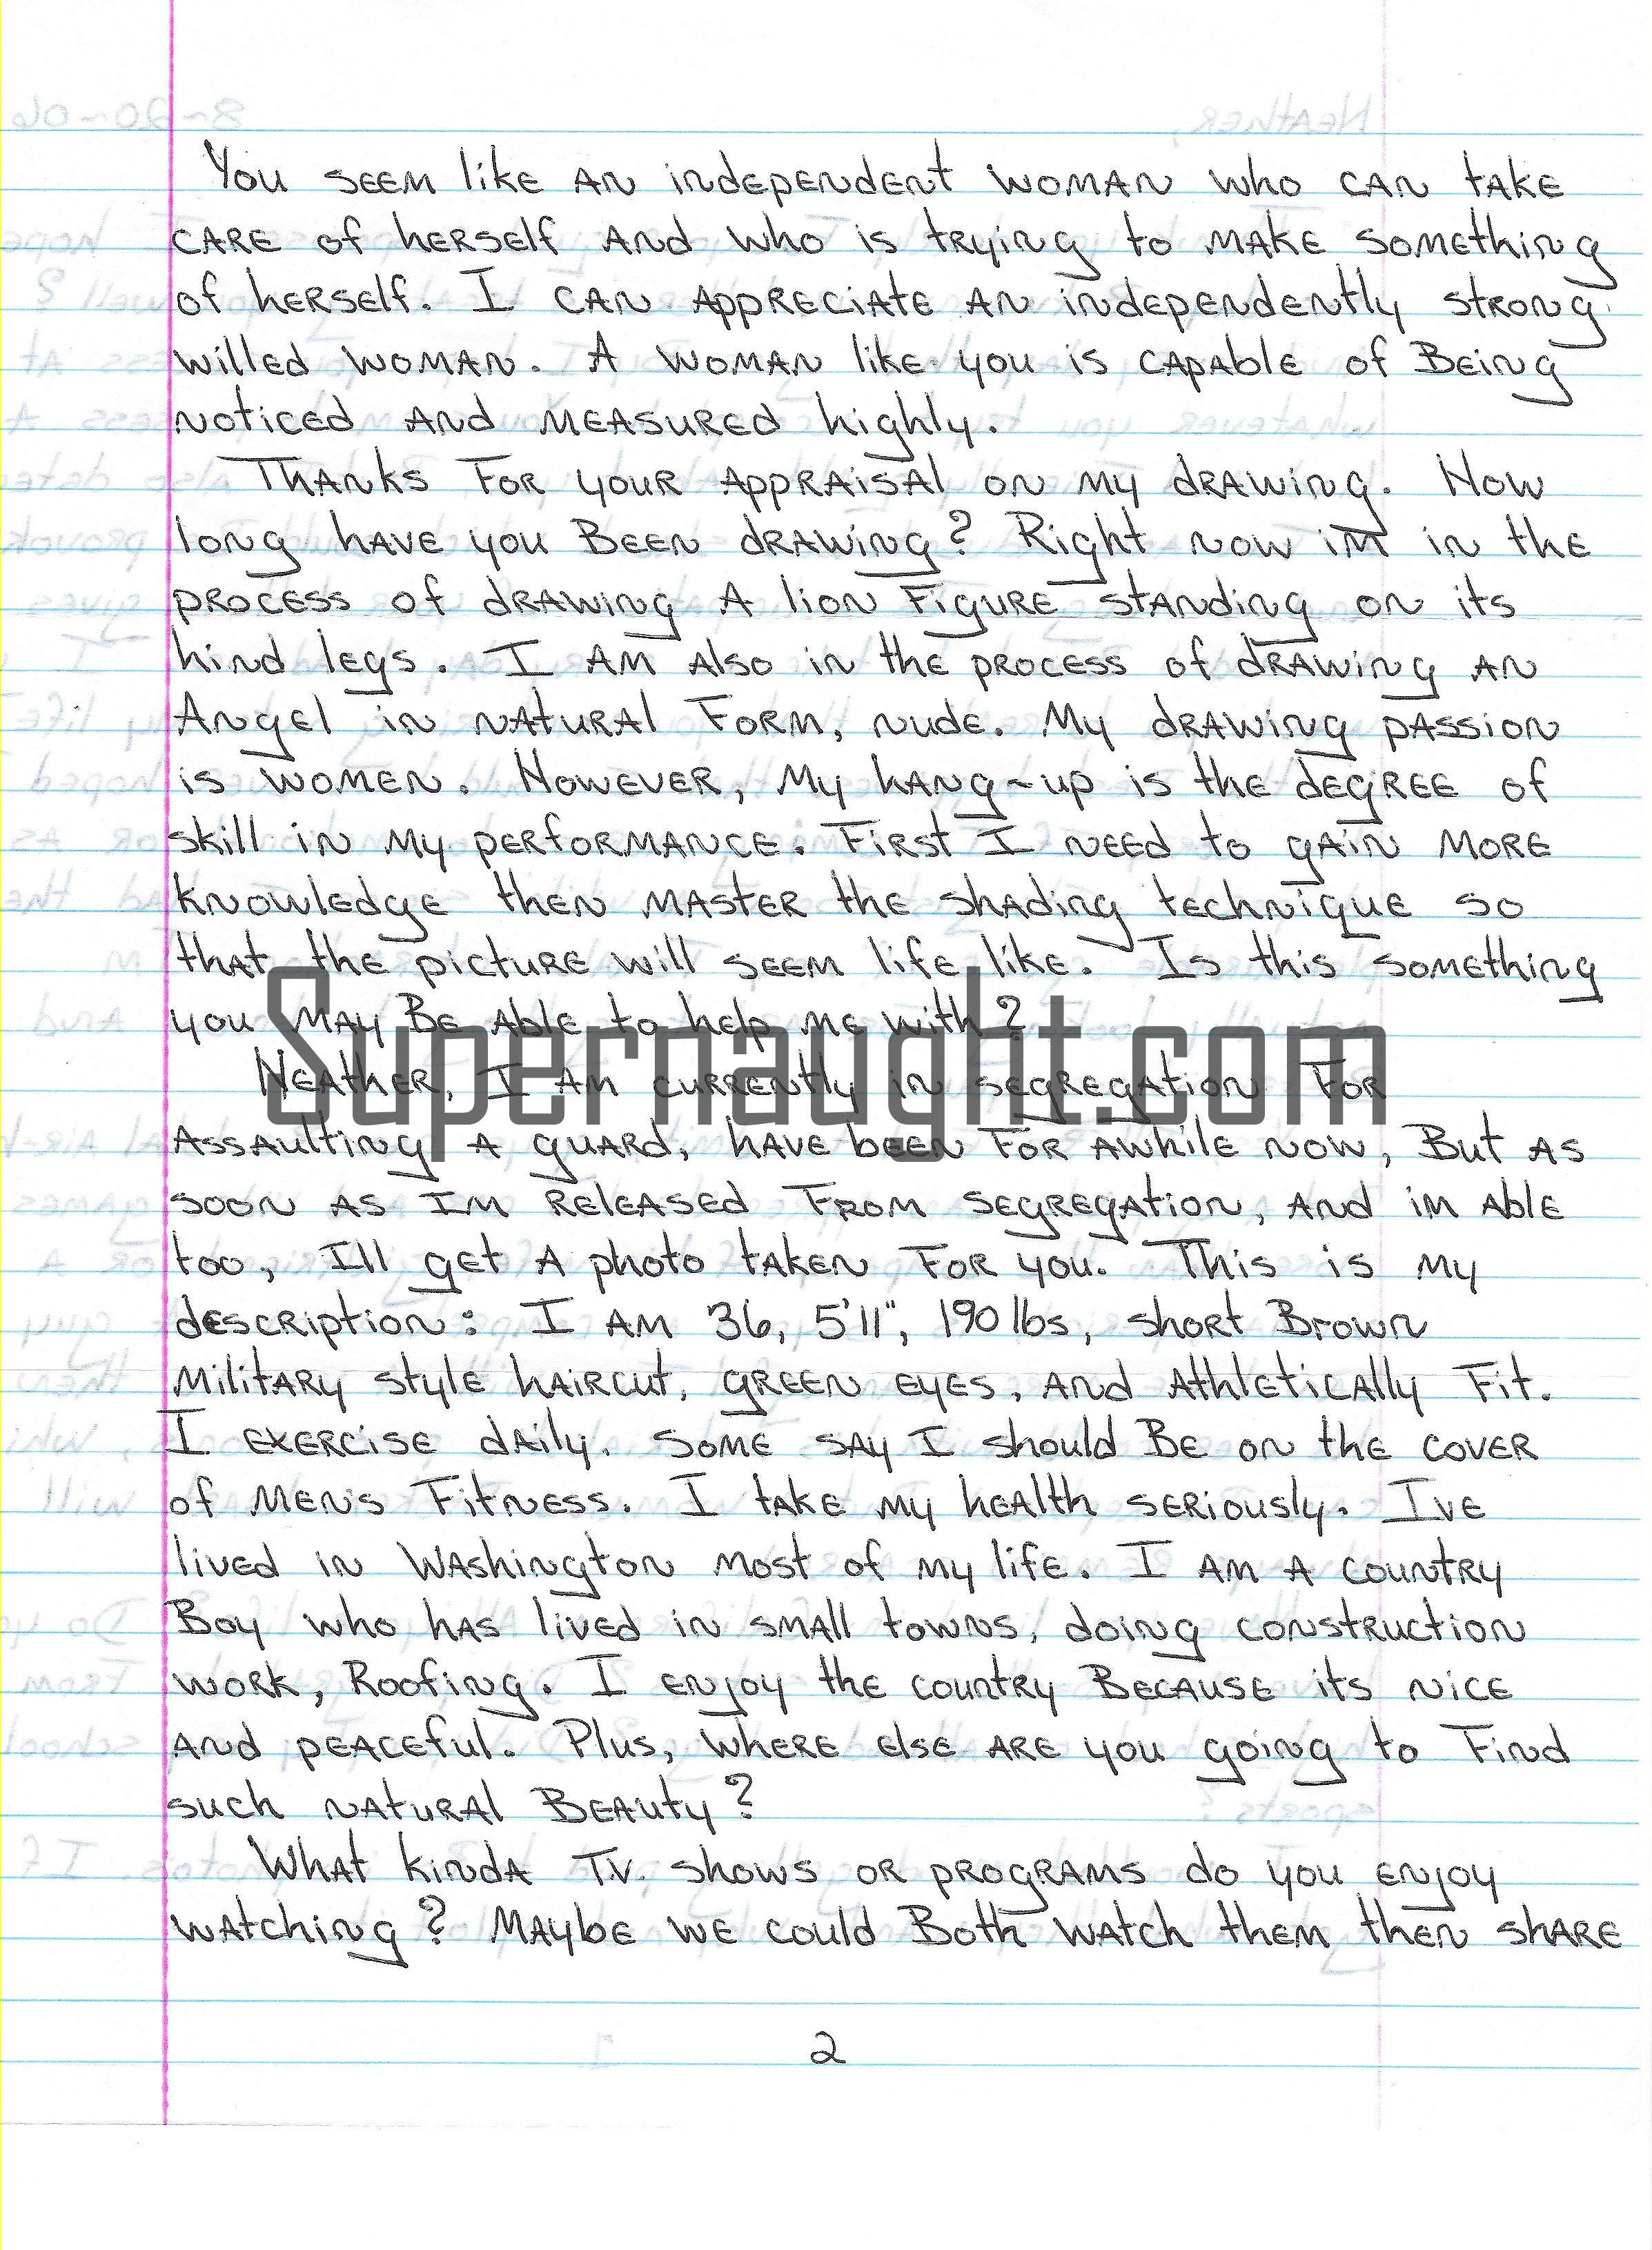 You seem like an independent woman who can take
care of herself and who is trying to make something
of herself. I can appreciate an independently strong
willed woman. A woman like you is capable of Being
noticed and measured highly.
Thanks For your appraisal on my drawing. How
long have you Been drawing? Right now im in the
process of drawing a lion Figure standing on its
hind legs. I am also in the process of drawing an
Angel in natural Form, nude. My drawing passion
is women. However, my hang-up is the degree of
skill in my performance. First I need to gain more
knowledge then master the shading technique so
that the picture will seem life like. Is this something
you may Be able to help me with?
Supernaught.com
Heather, I am currently in segregation For
assaulting a guard, have been For awhile now, But as
soon as Im released From segregation, and im able
too, Ill get a photo taken For you. This is my
description: I am 36, 5'11", 190 lbs, short Brown
military style haircut, green eyes, and athletically Fit.
I exercise daily. Some say I should Be on the cover
of Men's Fitness. I take my health seriously. Ive
lived in Washington most of my life. I am a country
Boy who has lived in small towns, doing construction
work, Roofing. I enjoy the country Because its nice
and peaceful. Plus, where else are you going to Find
such natural Beauty?
What kinda T.V. shows or programs do you enjoy
watching? Maybe we could Both watch them then share
2